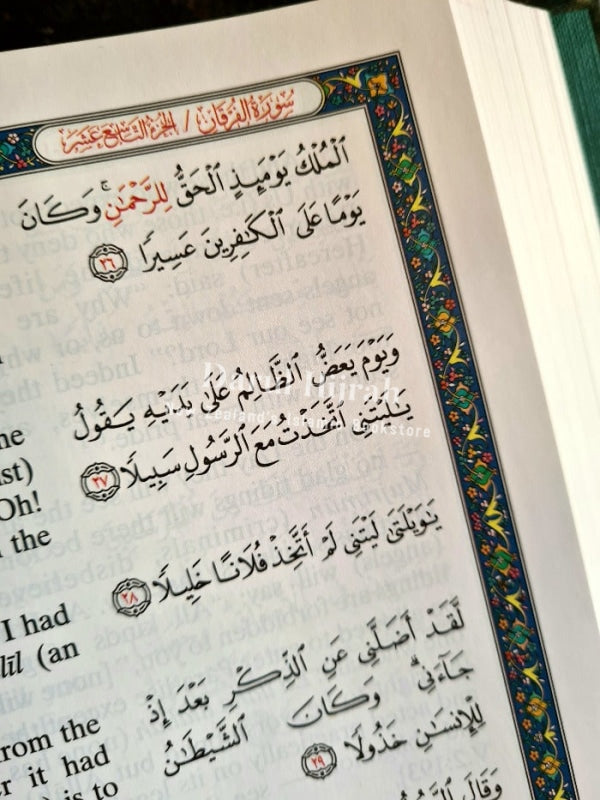 سورة الفرقان / الجزء التاسع عشر
ٱلْمُلْكُ يَوْمَئِذٍ ٱلْحَقُّ لِلرَّحْمَٰنِ ۚ وَكَانَ
يَوْمًا عَلَى ٱلْكَٰفِرِينَ عَسِيرًا ٢٦
وَيَوْمَ يَعَضُّ ٱلظَّالِمُ عَلَىٰ يَدَيْهِ يَقُولُ
يَٰلَيْتَنِى ٱتَّخَذْتُ مَعَ ٱلرَّسُولِ سَبِيلًا ٢٧
يَٰوَيْلَتَىٰ لَيْتَنِى لَمْ أَتَّخِذْ فُلَانًا خَلِيلًا ٢٨
لَّقَدْ أَضَلَّنِى عَنِ ٱلذِّكْرِ بَعْدَ إِذْ
جَآءَنِى ۗ وَكَانَ ٱلشَّيْطَٰنُ
لِلْإِنسَٰنِ خَذُولًا ٢٩
وَقَالَ ٱلرَّسُولُ
ne
ast)
Oh!
the
I had
līl (an
from the
er it had
is to
Darul Hijrah
New Zealand's Islamic Bookstore